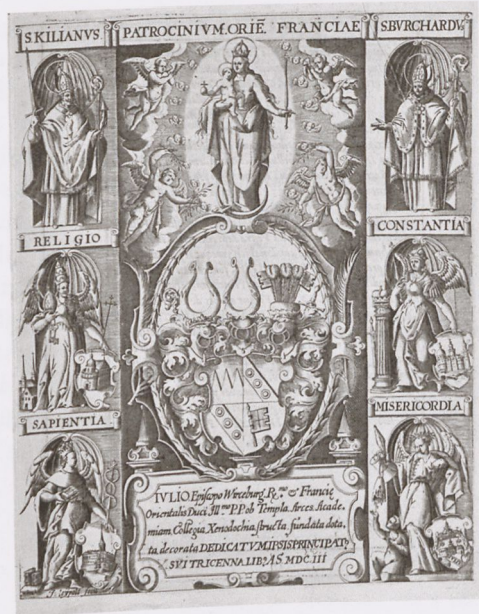 S. KILIANVS
PATROCINIVM. ORIĒ. FRANCIAE
S. BVRCHARDV
RELIGIO
CONSTANTIA
SAPIENTIA
MISERICORDIA
IVLIO Episcopo Wirceburg. Rᵐᵒ & Francię
Orientalis Duci Illᵐᵒ P.P. ob Templa. Arces. Acade.
miam. Collegia. Xenodochia structa fundata dota.
ta decorata DEDICATVM. IPSIS PRINCIPAT⁹
SVI TRICENNALIB⁹. AS MDC.III